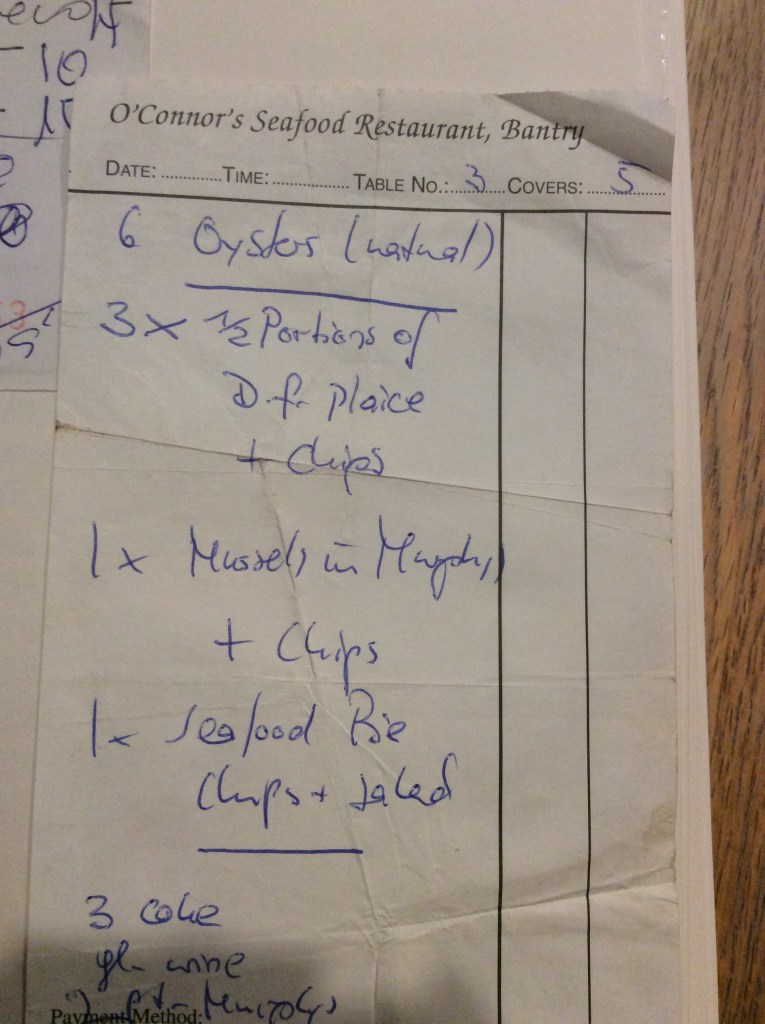 10
O'Connor's Seafood Restaurant, Bantry
DATE: ............ TIME: ............... TABLE NO.: 3 COVERS: 5
6 Oysters (natural)
3 x 1/2 Portions of
D.f. Plaice
+ Chips
1 x Mussels in Murphys
+ Chips
1 x Seafood Pie
Chips + Salad
3 coke
gl. wine
pt. Murphys
Payment Method: